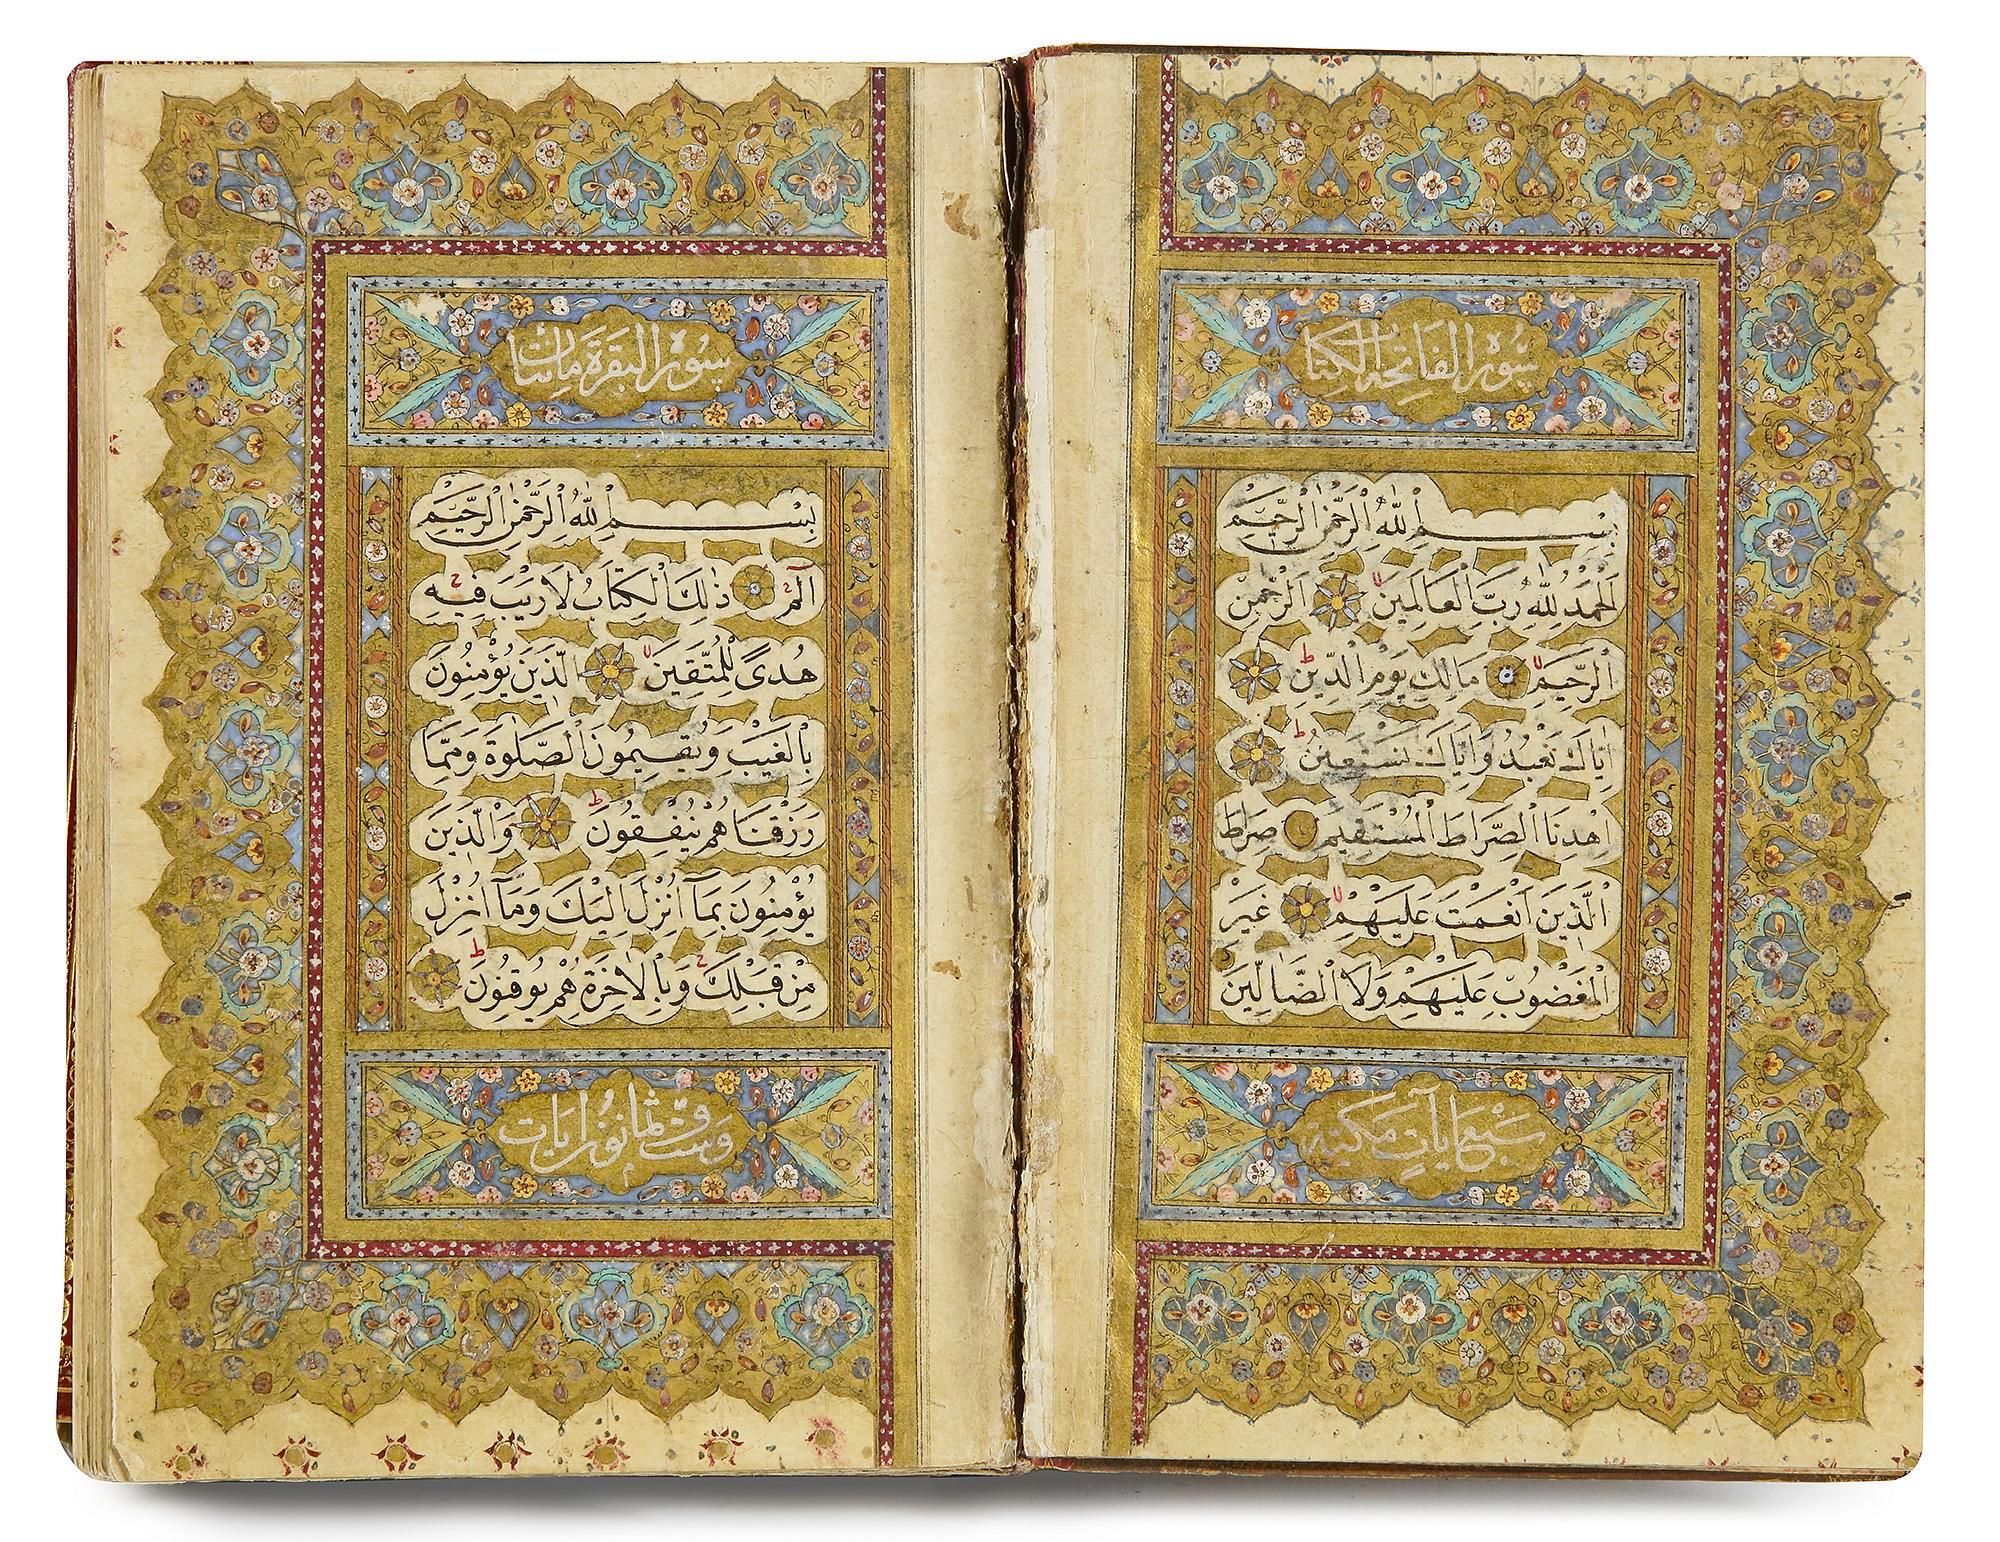 سورة الفاتحة الكتاب
بسم الله الرحمن الرحيم
اَلْحَمْدُ لِلّٰهِ رَبِّ الْعَالَمِينَ الرَّحْمٰنِ
الرَّحِيمِ مَالِكِ يَوْمِ الدِّينِ
اِيَّاكَ نَعْبُدُ وَاِيَّاكَ نَسْتَعِينُ
اِهْدِنَا الصِّرَاطَ الْمُسْتَقِيمَ صِرَاطَ
الَّذِينَ اَنْعَمْتَ عَلَيْهِمْ غَيْرِ
الْمَغْضُوبِ عَلَيْهِمْ وَلَا الضَّالِّينَ
سبع ايات مكية
سورة البقرة مائتان
بسم الله الرحمن الرحيم
الٓمٓ ذٰلِكَ الْكِتَابُ لَا رَيْبَ فِيهِ
هُدًى لِلْمُتَّقِينَ الَّذِينَ يُؤْمِنُونَ
بِالْغَيْبِ وَيُقِيمُونَ الصَّلٰوةَ وَمِمَّا
رَزَقْنَاهُمْ يُنْفِقُونَ وَالَّذِينَ
يُؤْمِنُونَ بِمَٓا اُنْزِلَ اِلَيْكَ وَمَٓا اُنْزِلَ
مِنْ قَبْلِكَ وَبِالْاٰخِرَةِ هُمْ يُوقِنُونَ
وست وثمانون ايات